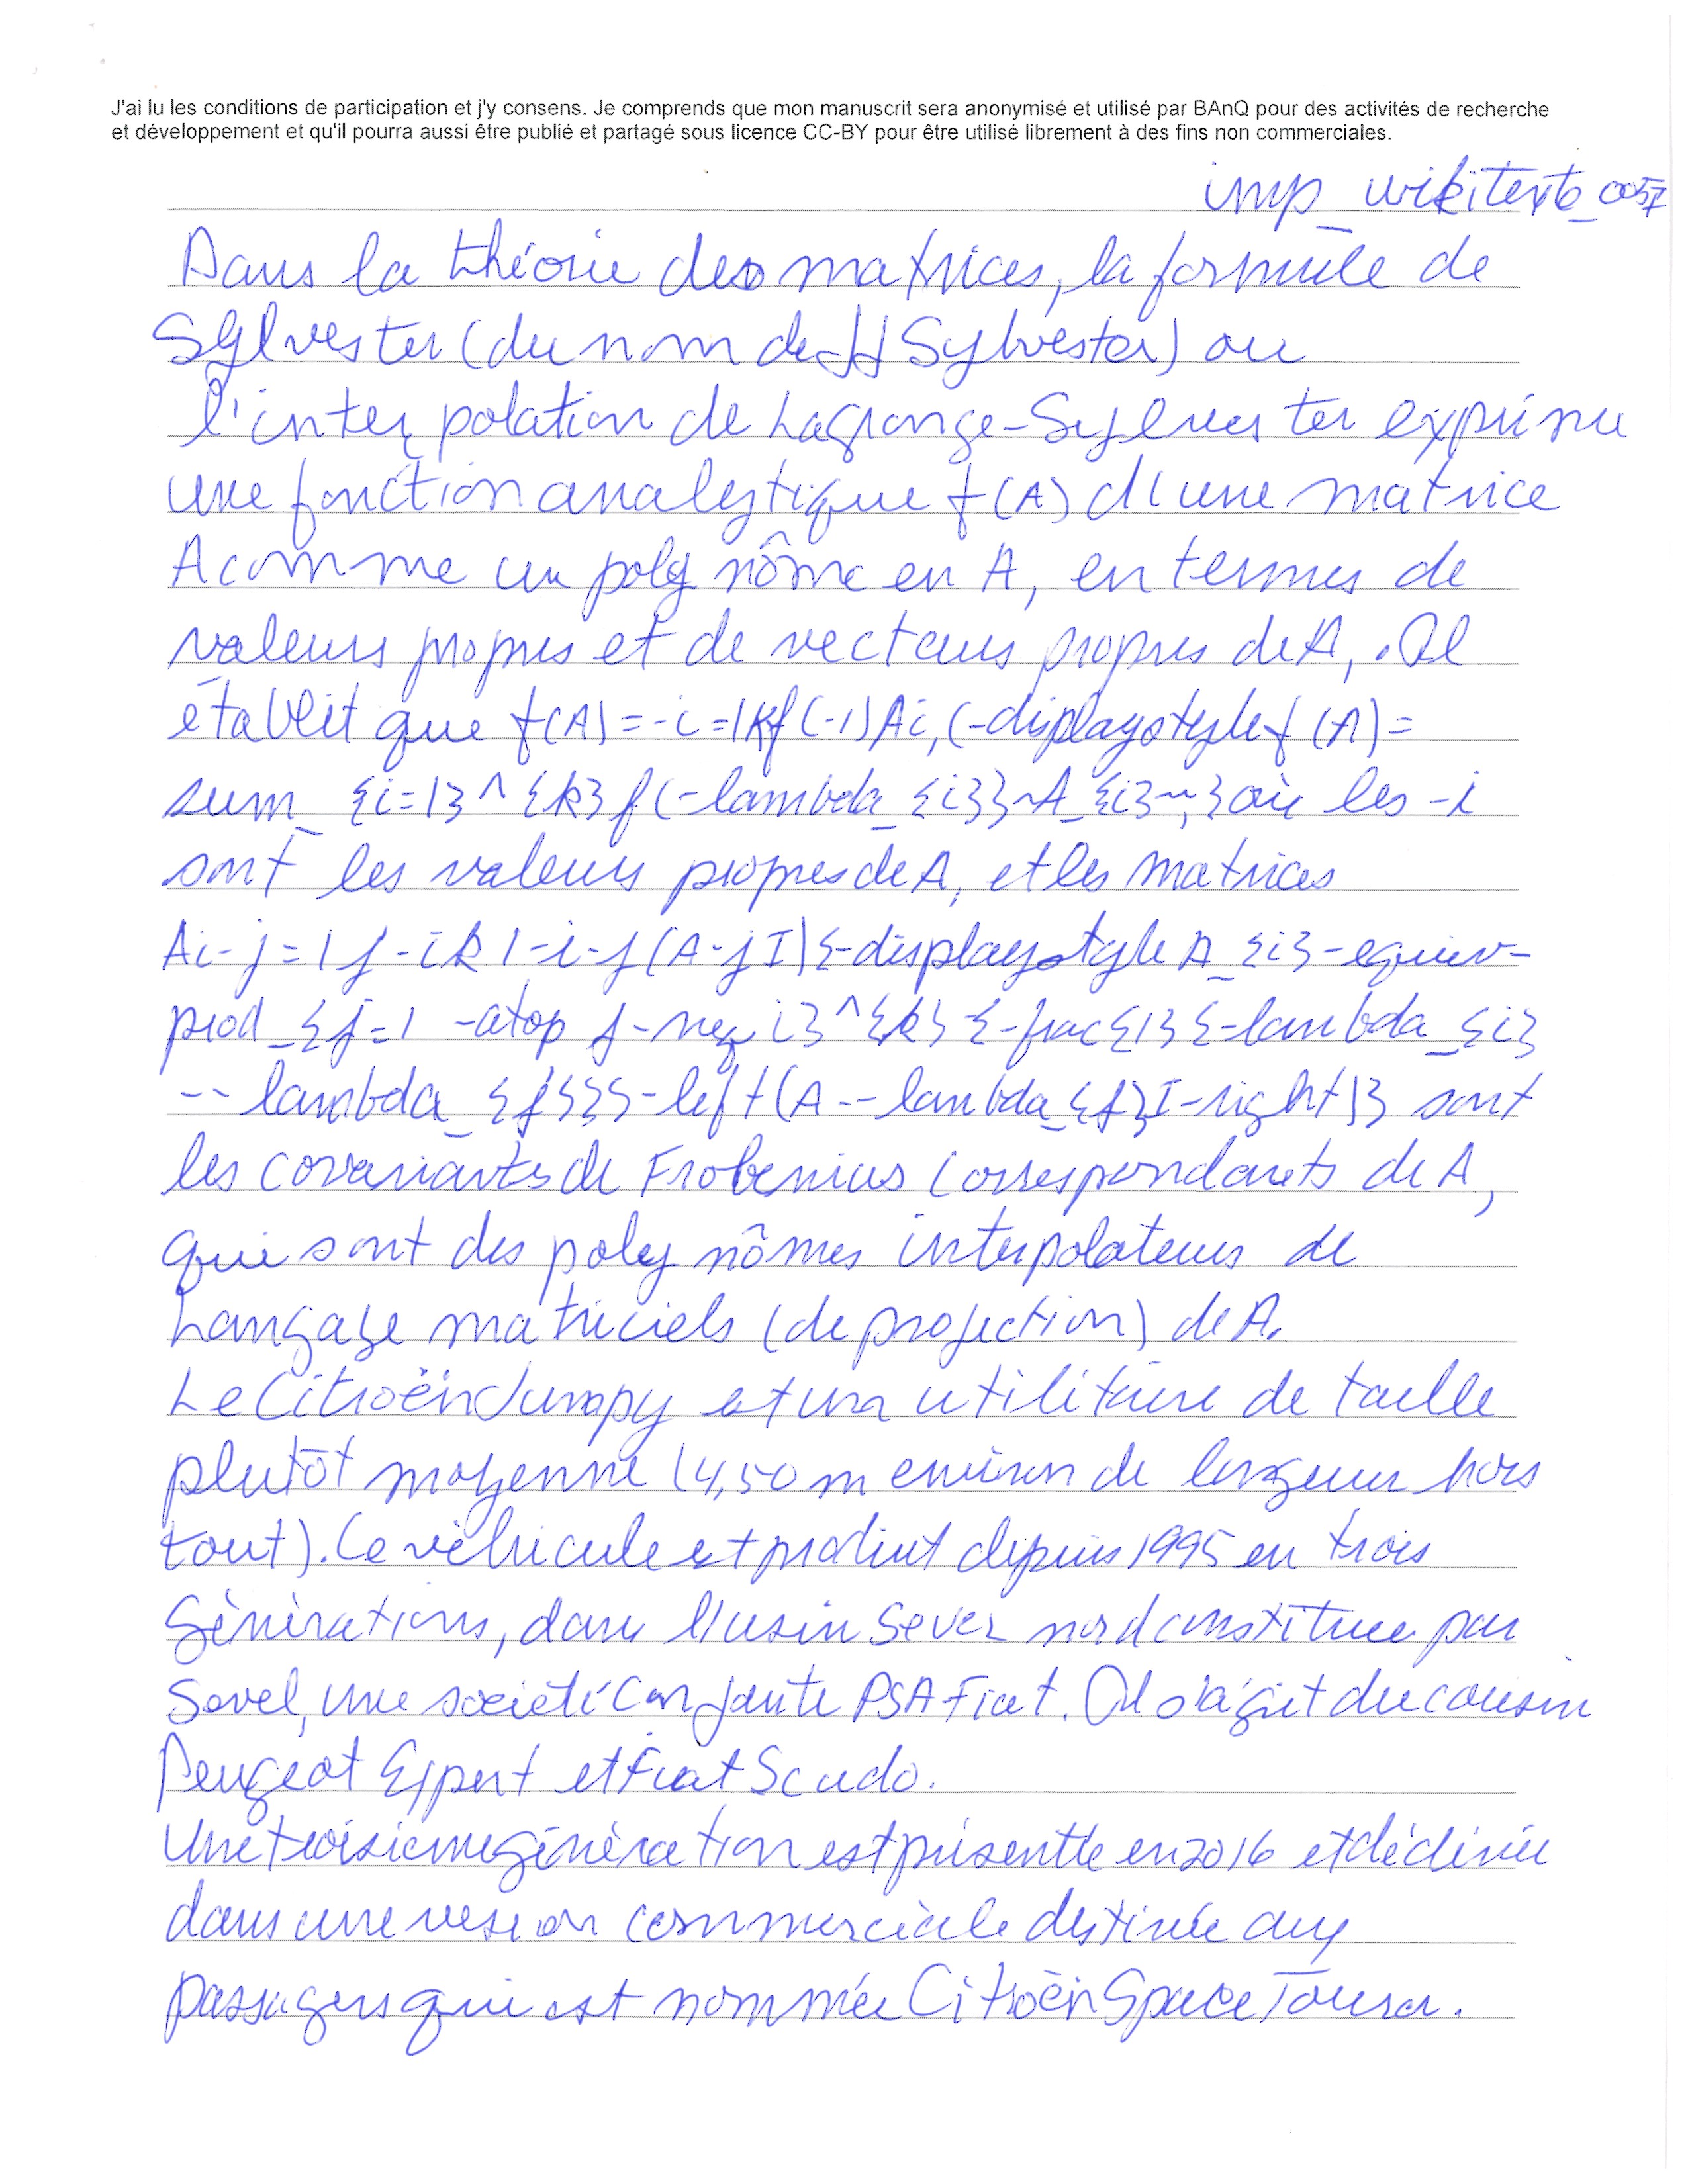 J'ai lu les conditions de participation et j'y consens. Je comprends que mon manuscrit sera anonymisé et utilisé par BAnQ pour des activités de recherche
et développement et qu'il pourra aussi être publié et partagé sous licence CC-BY pour être utilisé librement à des fins non commerciales.
imp_wikitexte_0057
Dans la théorie des matrices, la formule de
Sylvester (du nom de JJ Sylvester) ou
l'interpolation de Lagrange-Sylvester exprime
une fonction analytique f(A) d'une matrice
A comme un polynôme en A, en termes de
valeurs propres et de vecteurs propres de A,. Il
établit que f(A)=-i=1kf(-i)Ai,(-displaystyle f(A)=
sum_{i=1}^{k}f(-lambda_{i}}~A_{i}~,} où les -i
sont les valeurs propres de A, et les matrices
Ai-j=1j-ik1-i-j(A-jI){-displaystyle A_{i}-equiv-
prod_{j=1 -atop j-neq i}^{k}{-frac{1}{-lambda_{i}
--lambda_{j}}}-left(A--lambda_{j}I-right)} sont
les covariants de Frobenius correspondants de A,
qui sont des polynômes interpolateurs de
Langage matriciels (de projection) de A.
Le Citroën Jumpy est un utilitaire de taille
plutôt moyenne (4,50 m environ de longueur hors
tout). Ce véhicule est produit depuis 1995 en trois
générations, dans l'usin Sevel nord constituee par
Sevel, une société conjointe PSA Fiat. Il s'agit du cousin
Peugeot Expert et Fiat Scudo.
Une troisieme génération est présentée en 2016 et déclinée
dans une version commerciale destinée aux
passagers qui est nommée Citroën Space Tourer.